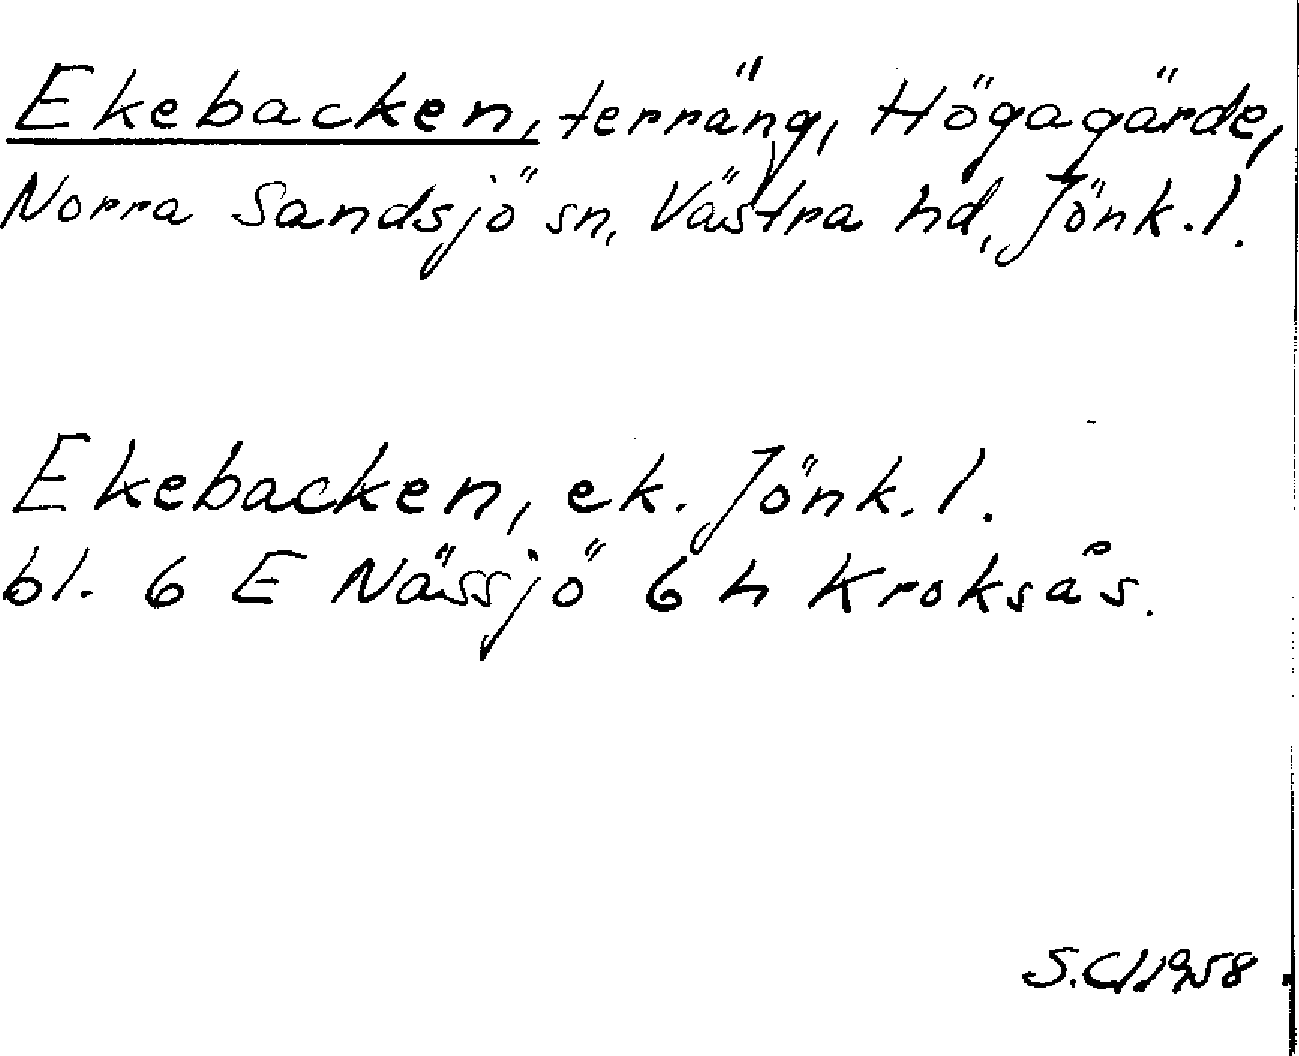 Ekebacken, terräng, Högagärde,
Norra Sandsjö sn, Västra hd, Jönk. l.
Ekebacken, ek. Jönk. l.
bl. 6 E Nässjö 6 h Kroksås.
1958